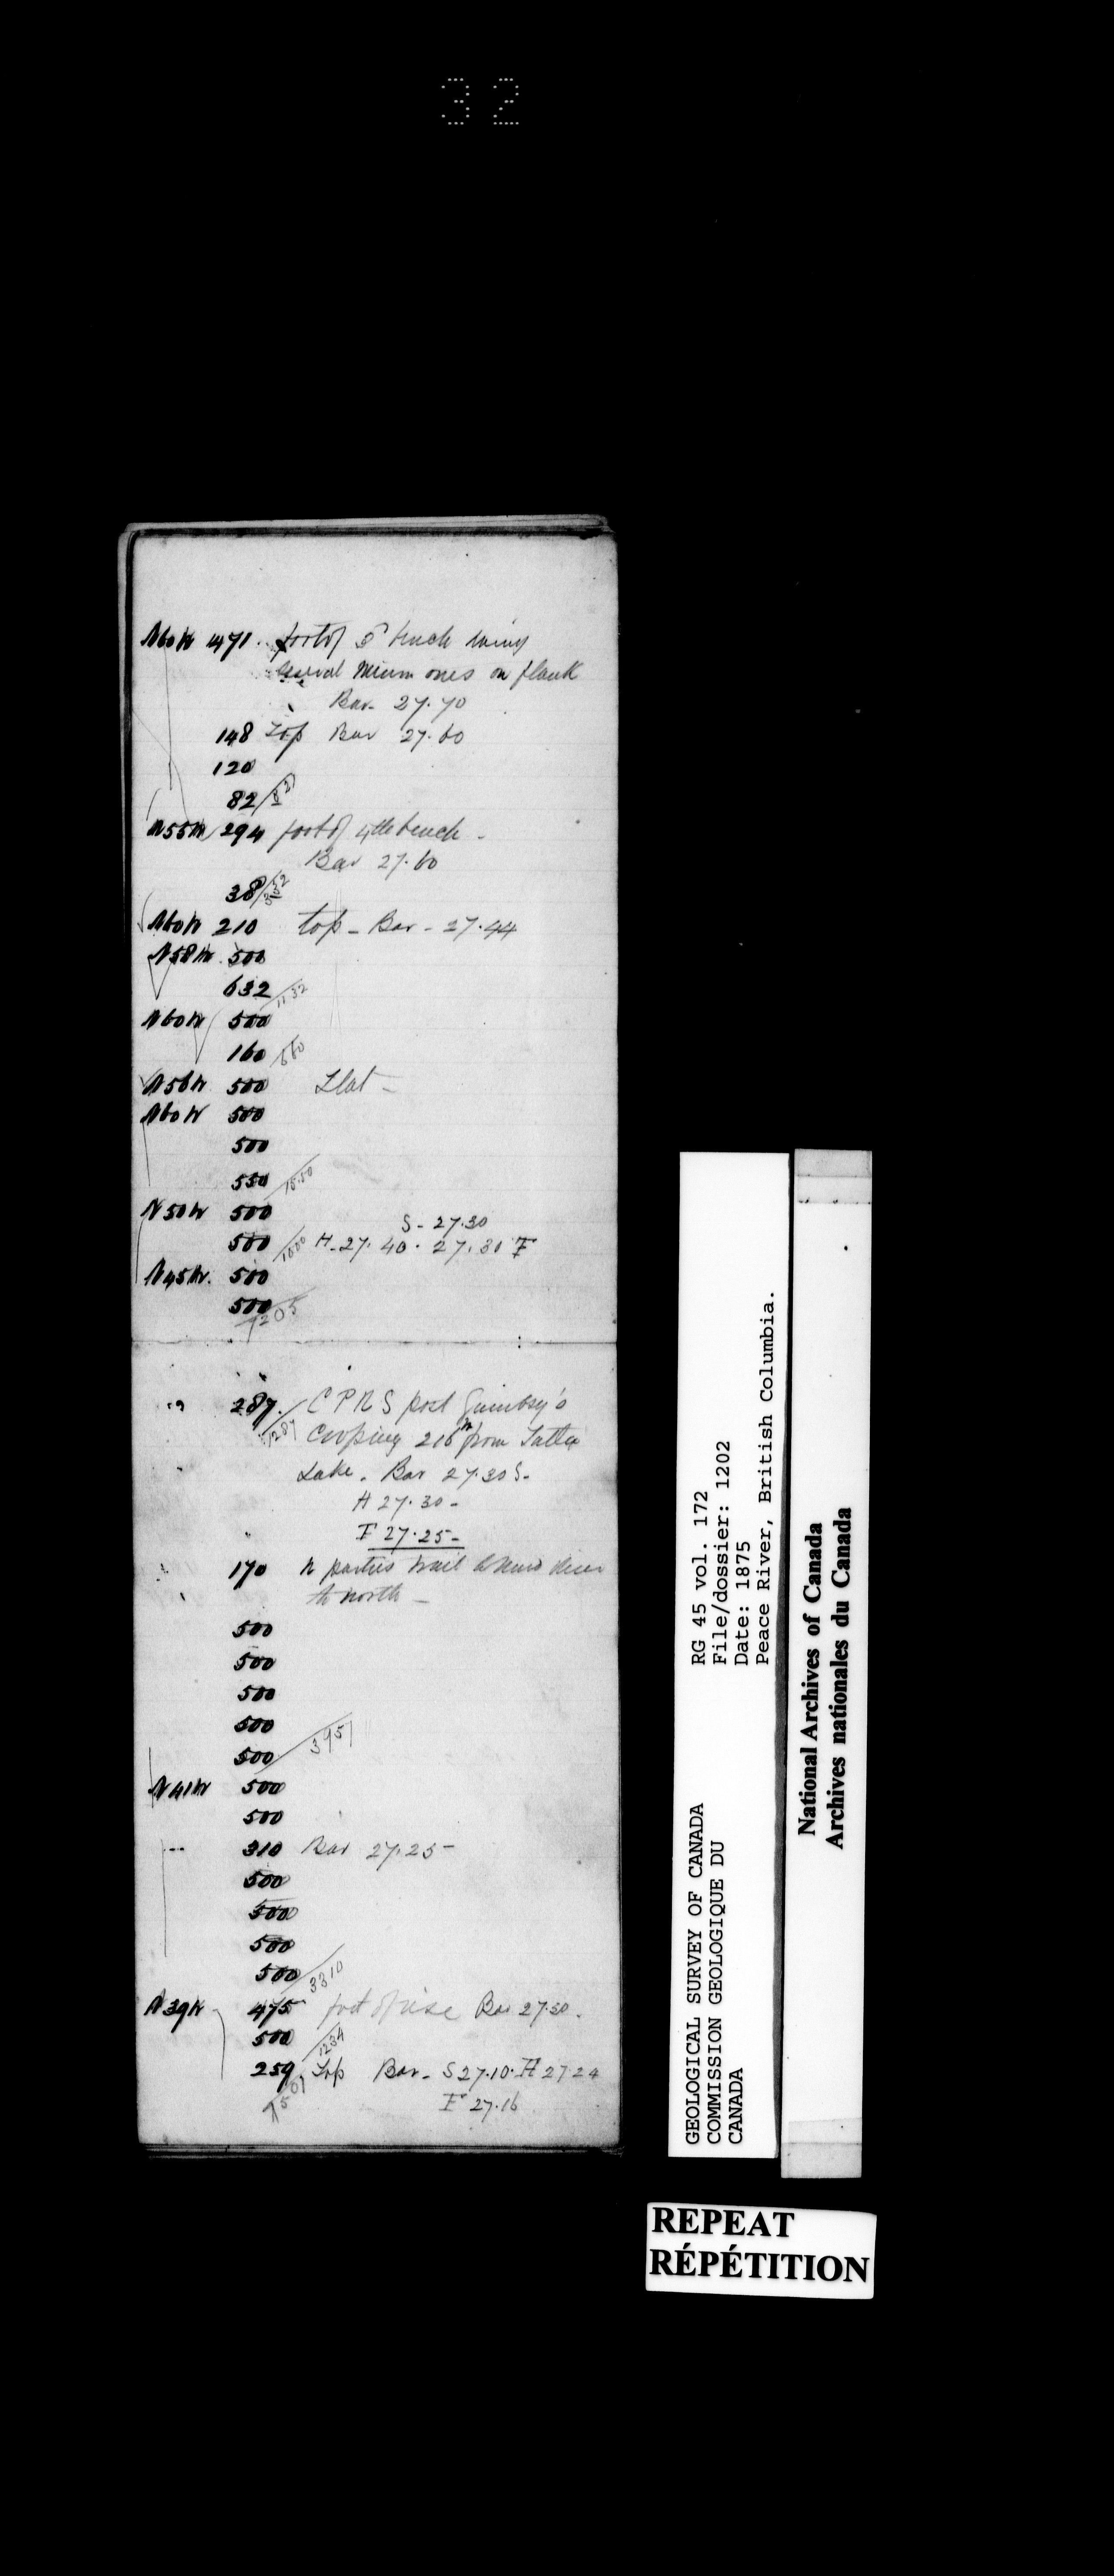 32
N60W 471. foot of 5th bench having
several minor ones on flank
Bar. 27.70
148 Top Bar 27.60
120
82 / 821
N55W 294 foot of 4th bench -
Bar 27.60
38 / 332
N60W 210 top - Bar - 27.44
N58W. 500
632 / 1132
N60W 500
160 / 660
N56W 500 Flat -
N60W 500
500
550 / 1550
N50W 500
S - 27.30
500 / 1000 H - 27.40. 27.30 F
N45W. 500
500
7205
287. / 1287 C P R S post
216 from
Lake. Bar 27.30 S-
H 27.30 -
F 27.25 -
170 parties trail
to north -
500
500
500
500
500 / 3957
N41W 500
500
310 Bar 27.25 -
500
500
500
500 / 3310
N39W 475 foot of rise Bar 27.30.
500 / 1234
259. Top Bar - S 27.10. H 27.24
F 27.16
7501
RG 45 vol. 172
File/dossier: 1202
Date: 1875
Peace River, British Columbia.
GEOLOGICAL SURVEY OF CANADA
COMMISSION GEOLOGIQUE DU
CANADA
National Archives of Canada
Archives nationales du Canada
REPEAT
RÉPÉTITION